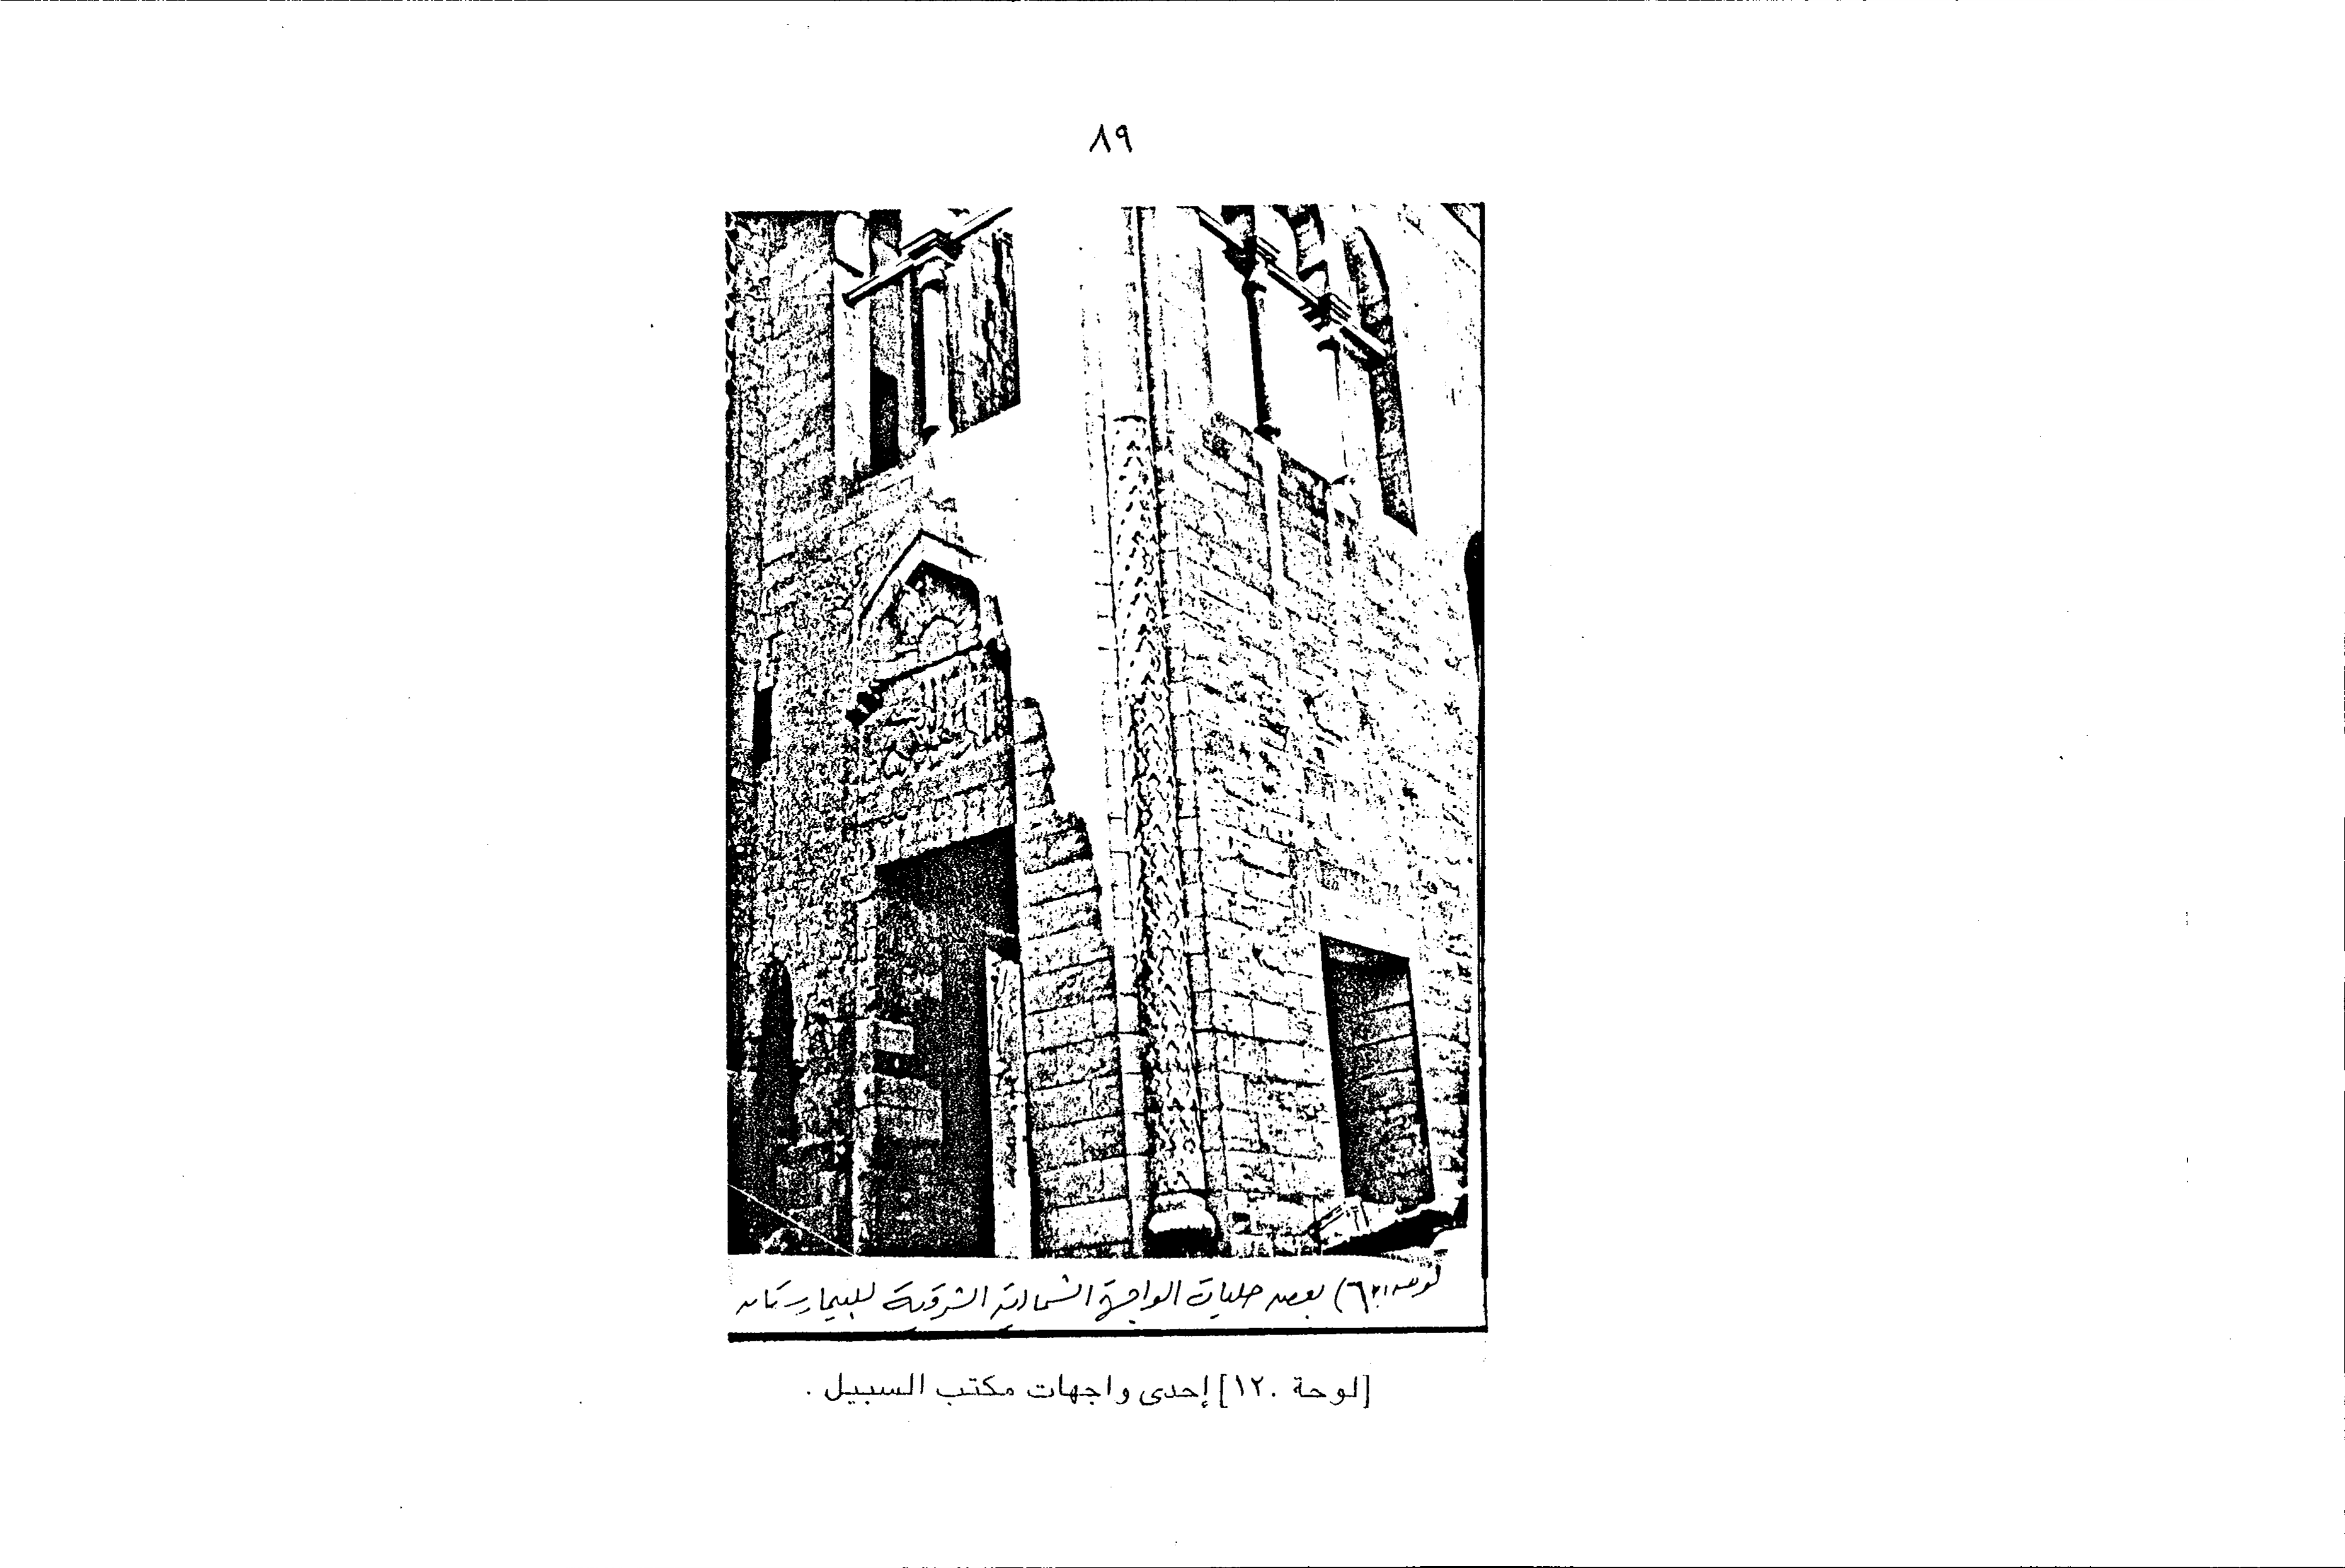 ٨٩
بعض حليات الواجهة الشمالية الشرقية للبيمارستان
[لوحة ١٢٠] إحدى واجهات مكتب السبيل .